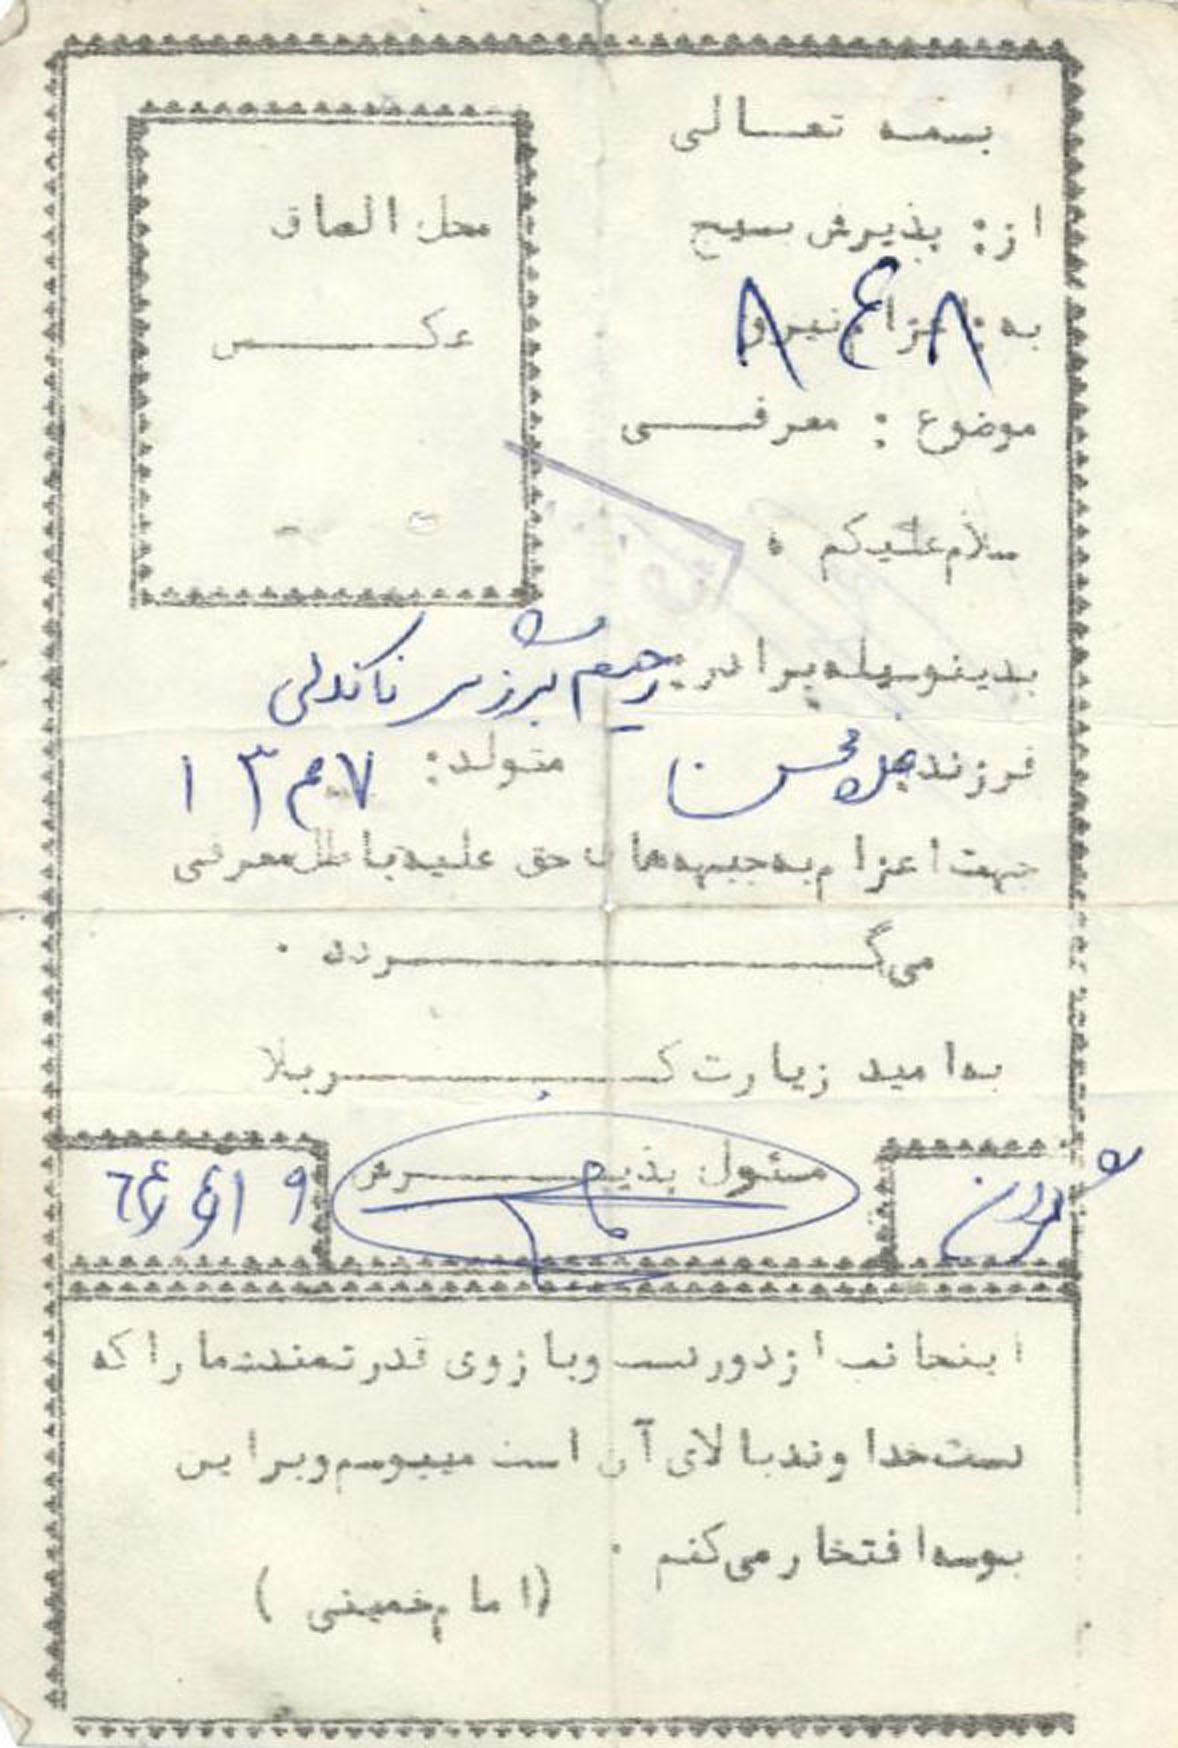 بسمه تعالی
محل الصاق
عکس
از: پذیرش بسیج
به: اعزام نیرو
۸۴۸
موضوع: معرفی
سلام علیکم
بدینوسیله برادر: رحیم
فرزند: متولد: ۱۳۴۷
جهت اعزام به جبهه های حق علیه باطل معرفی
می گردد.
به امید زیارت کربلا
مسئول پذیرش
اینجانب از دور دست و بازوی قدرتمند شما را که
دست خداوند بالای آن است میبوسم و بر این
بوسه افتخار می کنم.
(امام خمینی)